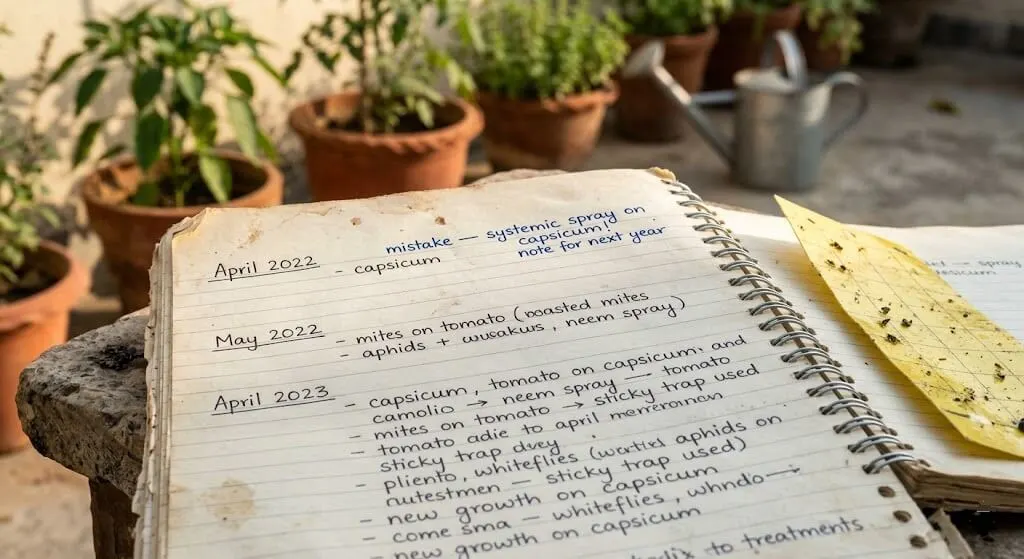 mistake — systemic spray on
capsicum!
note for next year
April 2022 - capsicum
May 2022 - mites on tomato (woasted mites
- aphids + wusakus, neem spray)
April 2023 - capsicum, tomato on capsicum, and
camolio → neem spray — tomato
- mites on tomato → sticky
- tomato adie to april
sticky trap dvey trap used
- pliento, whiteflies aphids on
nutestmen — sticky trap used)
- new growth on capsicum
- come sma — whiteflies, whndo→
- new growth on capsicum
to treatments
spray